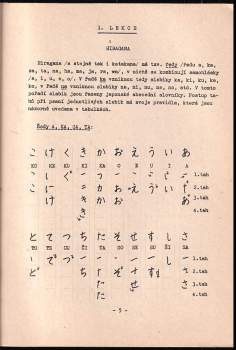 1. LEKCE
HIRAGANA
Hiragana /a stejně tak i katakana/ má tzv. řady /řadu a, ka,
sa, ta, na, ha, ma, ja, ra, wa/, v nichž se kombinují samohlásky
/a, i, u, e, o/. V řadě ka vzniknou tedy slabiky ka, ki, ku, ke,
ko, v řadě na vzniknou slabiky na, ni, nu, ne, no, atd. V tomto
pořadí slabik jsou řazeny japonské abecední slovníky. Postup ta-
hů při psaní jednotlivých slabik má svoje pravidla, která jsou
názorně uvedena v tabulkách.
Řady A, KA, SA, TA:
こ け く き か お え う い あ
KO KE KU KI KA O E U I A
1.tah
2.tah
3.tah
4.tah
と て つ ち た そ せ す し さ
TO TE CU ČI TA SO SE SU ŠI SA
1.tah
2.tah
3.tah
4.tah
- 5 -